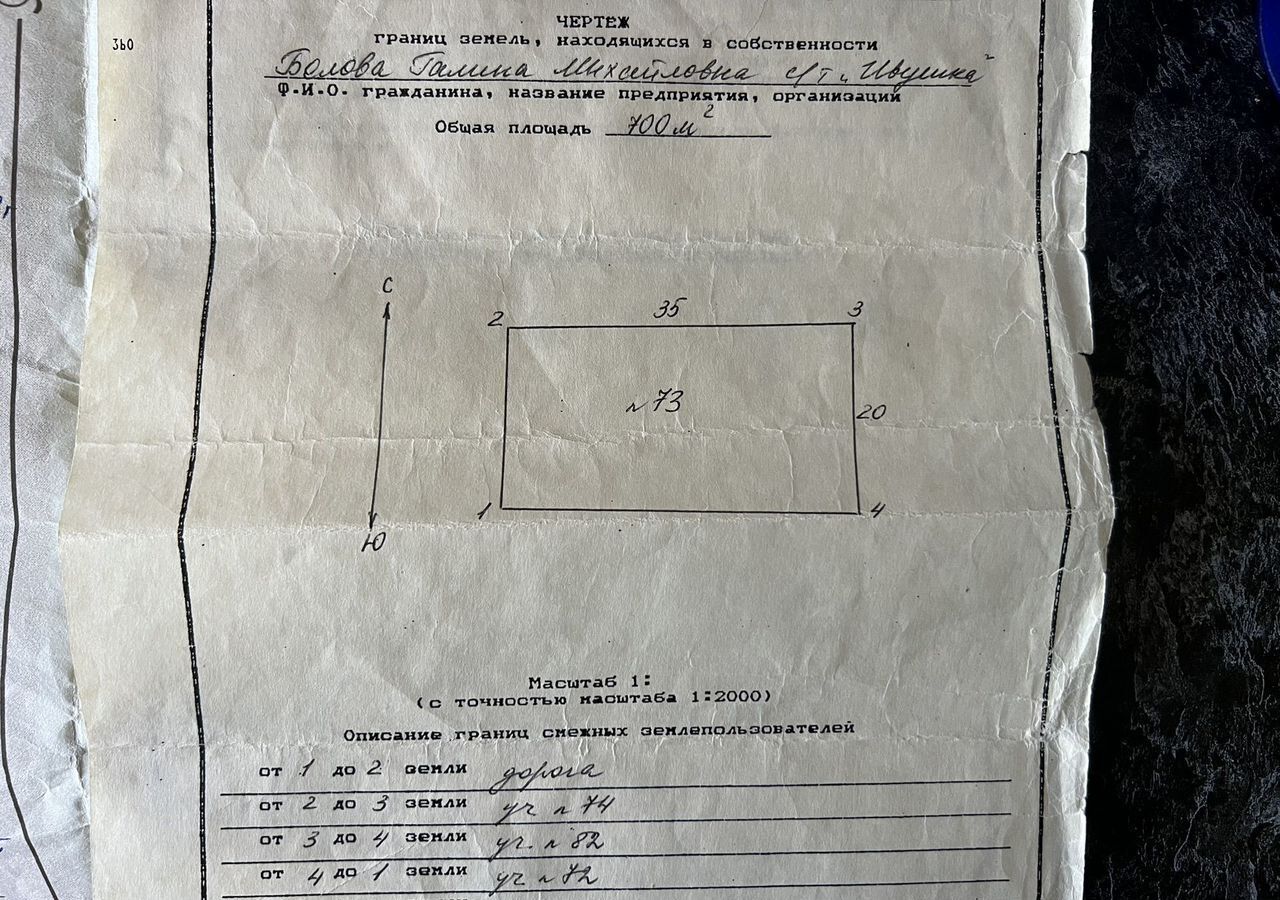 360
ЧЕРТЕЖ
границ земель, находящихся в собственности
Болова Галина Михайловна с/т „Ивушка"
Ф.И.О. гражданина, название предприятия, организаций
Общая площадь 700 м²
С
2 35 3
№73
20
1 4
Ю
Масштаб 1:
(с точностью масштаба 1:2000)
Описание границ смежных землепользователей
от 1 до 2 земли дорога
от 2 до 3 земли уч № 74
от 3 до 4 земли уч. № 82
от 4 до 1 земли уч № 72